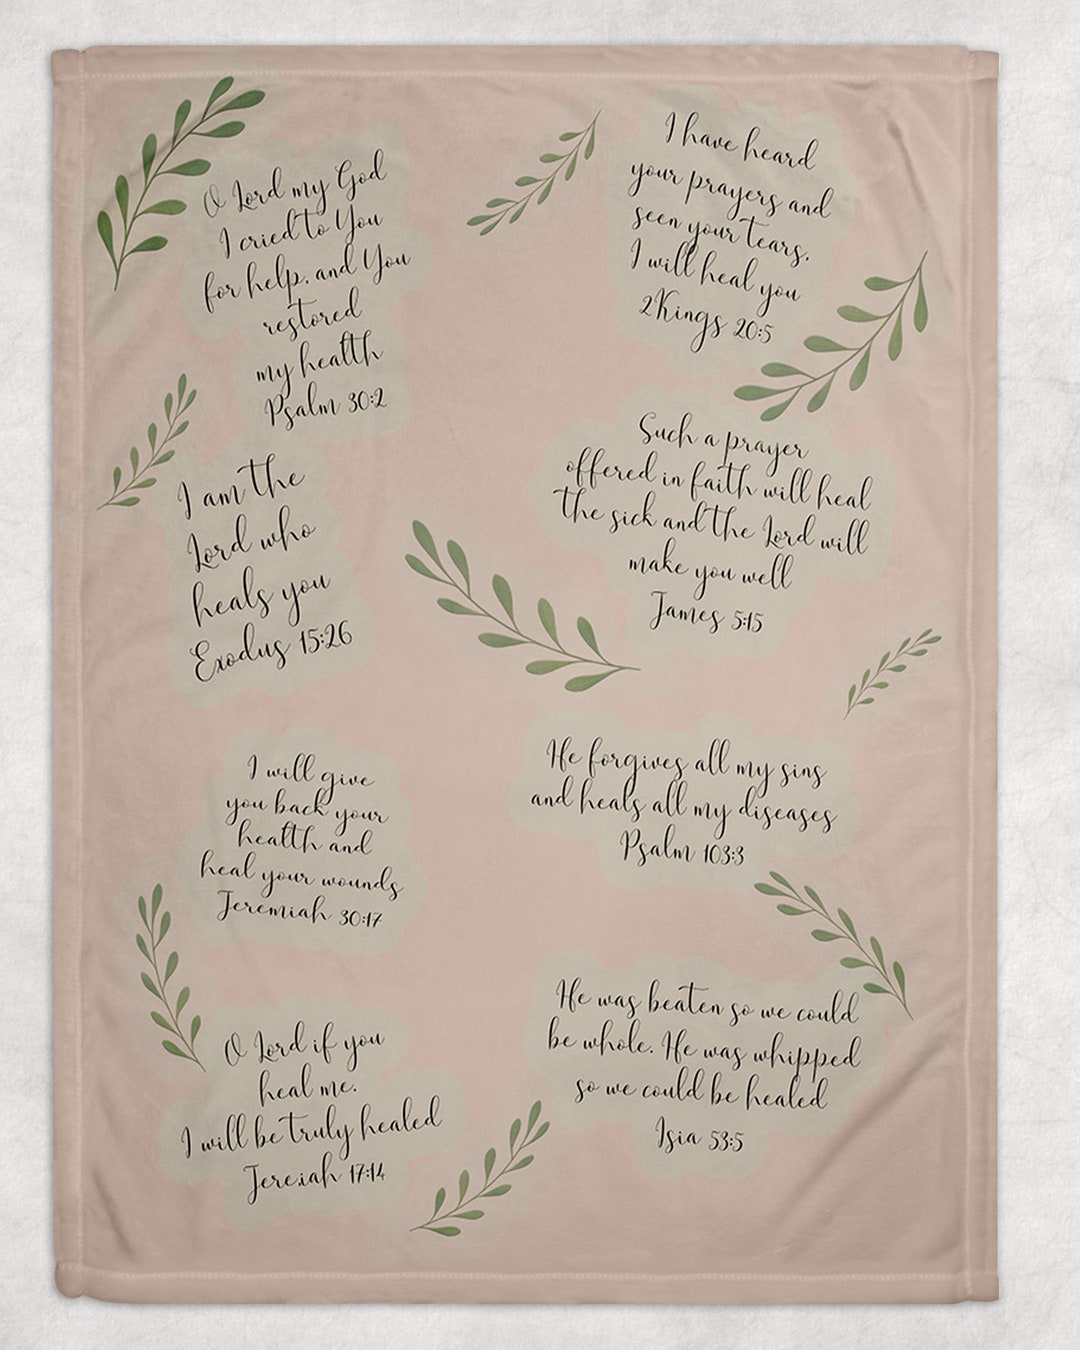 O Lord my God
I cried to You
for help, and You
restored
my health
Psalm 30:2
I have heard
your prayers and
seen your tears.
I will heal you
2Kings 20:5
I am the
Lord who
heals you
Exodus 15:26
Such a prayer
offered in faith will heal
the sick and the Lord will
make you well
James 5:15
I will give
you back your
health and
heal your wounds
Jeremiah 30:17
He forgives all my sins
and heals all my diseases
Psalm 103:3
O Lord if you
heal me.
I will be truly healed
Jere.iah 17:14
He was beaten so we could
be whole. He was whipped
so we could be healed
Isia 53:5